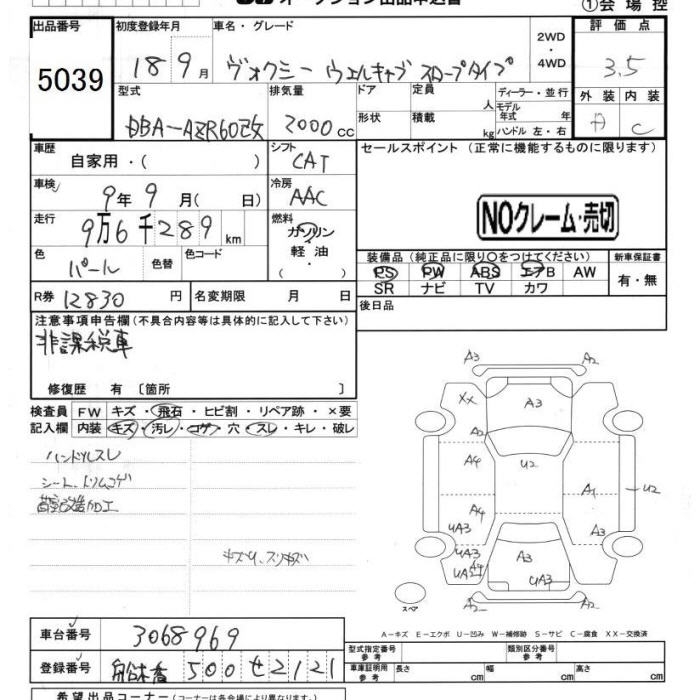 オークション出品申込書
①会場控
出品番号 初度登録年月 車名・グレード 評価点
5039 18 9月 ヴォクシー ウェルキャブ スロープタイプ 2WD・4WD 3.5
型式 排気量 ドア 定員 人 ディーラー・並行 外装 内装
DBA-AZR60改 2000cc 形状 積載 kg モデル年式 年 ハンドル 左・右 A C
車歴 シフト セールスポイント (正常に機能するものに限ります)
自家用・( ) CAT
車検 冷房
9年9月( 日) AAC
NOクレーム・売切
走行 燃料
9万6千289km ガソリン・軽油・
色 色替 色コード
パール
装備品 (純正品に限り○をつけてください) 新車保証書
PS PW ABS エアB AW 有・無
SR ナビ TV カワ
R券 12830円 名変期限 月 日
後日品
注意事項申告欄 (不具合内容等は具体的に記入して下さい)
非課税車
修復歴 有 〔箇所 〕
検査員 FW キズ・飛石・ヒビ割・リペア跡・×要
記入欄 内装 キズ・汚レ・コゲ・穴・スレ・キレ・破レ
ハンドルスレ
シート、トリムコゲ
A3 A2
XX A3
A2
A4 U2
A4 A1 U2
UA3 A3
UA3 A4 A3
UA3
A3 A2
スペア
A-キズ E-エクボ U-凹み W-補修跡 S-サビ C-腐食 XX-交換済
車台番号 3068969
型式指定番号 参考 類別区分番号 参考
登録番号 船橋 500 せ 2121
車庫証明用 参考 長さ cm 幅 cm 高さ cm
希望出品コーナー (コーナーは各会場により異なります)